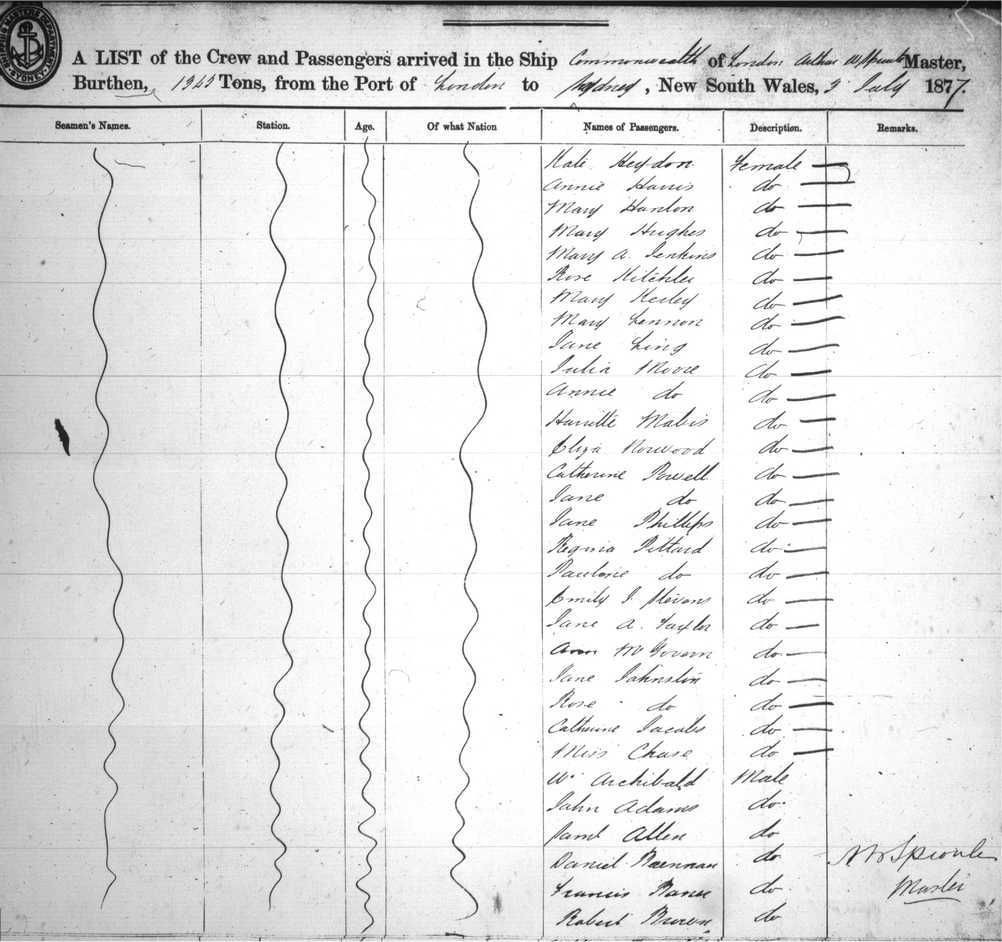 SHIPPING MASTER'S DEPARTMENT
SYDNEY
A LIST of the Crew and Passengers arrived in the Ship Commonwealth of London Arthur W Sproule Master,
Burthen, 1343 Tons, from the Port of London to Sydney, New South Wales, 3 July 1877.
Seamen's Names. Station. Age. Of what Nation Names of Passengers. Description. Remarks.
Kate Heydon Female
Annie Harris do
Mary Hanlon do
Mary Hughes do
Mary A. Jenkins do
Rose do
Mary do
Mary Lennon do
Jane Ling do
Julia Moore do
Annie do do
do
Eliza Norwood do
Catherine Powell do
Jane do do
Jane Phillips do
Regina Pittard do
Pauline do do
Emily J. Stevens do
Jane A. Taylor do
Ann McGovern do
Jane Johnston do
Rose do do
Catherine Jacobs do
Miss Chase do
Wm Archibald Male
John Adams do
Saml Allen do
Daniel Brennan do
Francis do
Robert do
A W Sproule
Master